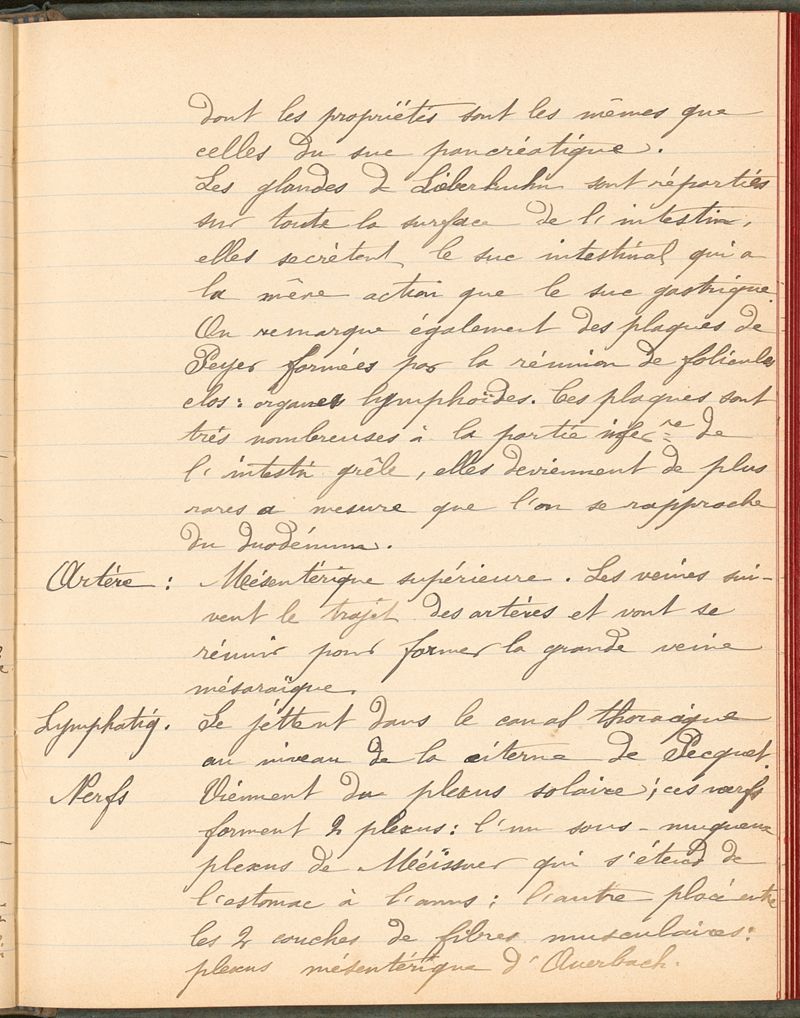 dont les propriétés sont les mêmes que
celles du suc pancréatique.
Les glandes de Lieberkuhn sont réparties
sur toute la surface de l'intestin,
elles secrètent le suc intestinal qui a
la même action que le suc gastrique.
On remarque également des plaques de
Peyer formées par la réunion de folicules
clos: organes lymphoïdes. Ces plaques sont
très nombreuses à la partie infer.re de
l'intestin grêle, elles deviennent de plus
rares a mesure que l'on se rapproche
du duodénum.
Artère : Mésentérique supérieure. Les veines sui-
vent le trajet des artères et vont se
réunir pour former la grande veine
mésaraïque.
Lymphatiq. Se jettent dans le canal thoracique
au niveau de la citerne de Pecquet.
Nerfs Viennent du plexus solaire; ces nerfs
forment 2 plexus: l'un sous-muqueux
plexus de Méissner qui s'étend de
l'estomac à l'anus; l'autre placé entre
les 2 couches de fibres musculaires:
plexus mésentérique d'Auerbach.